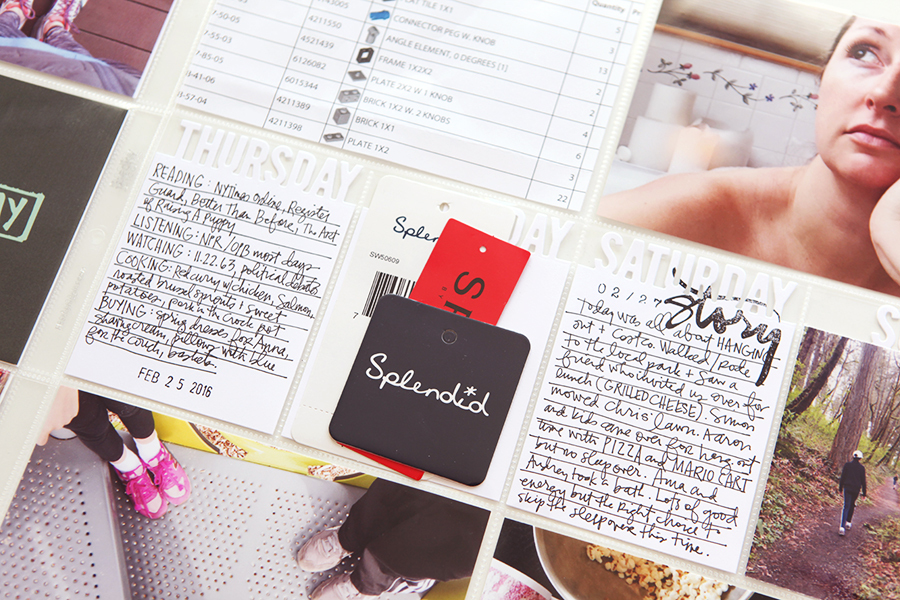 Quantity
43005
FLAT TILE 1X1
50-05
4211550
CONNECTOR PEG W. KNOB
55-03
4521439
ANGLE ELEMENT, 0 DEGREES [1]
85-05
6126082
FRAME 1X2X2
41-06
6015344
PLATE 2X2 W. 1 KNOB
57-04
4211389
BRICK 1X2 W. 2 KNOBS
4211398
BRICK 1X1
PLATE 1X2
3
3
13
2
2
4
6
3
22
THURSDAY
READING: NYTimes Online, Register
Guard, Better Than Before, The Art
of Raising A Puppy
LISTENING: NPR/OPB most days
WATCHING: 11.22.63, political debates
COOKING: Red curry w/chicken, Salmon,
roasted brussel sprouts + sweet
potatoes, pork in the crock pot
BUYING: Spring dresses for Anna,
Shaving cream, pillows with blue
for the couch, baskets.
FEB 25 2016
DAY
Splen
SW50609
SP
Splendid
SATURDAY
02/27
Story
Today was all about HANGING
out + Costco. Walked/rode
to the local park + saw a
friend who invited us over for
lunch (GRILLED CHEESE). Simon
mowed Chris' lawn. Aaron
and kids came over for hang out
time with PIZZA and MARIO CART
but no sleepover. Anna and
Ashen took a bath. Lots of good
energy but the right choice to
skip the sleepover this time.
S
AY